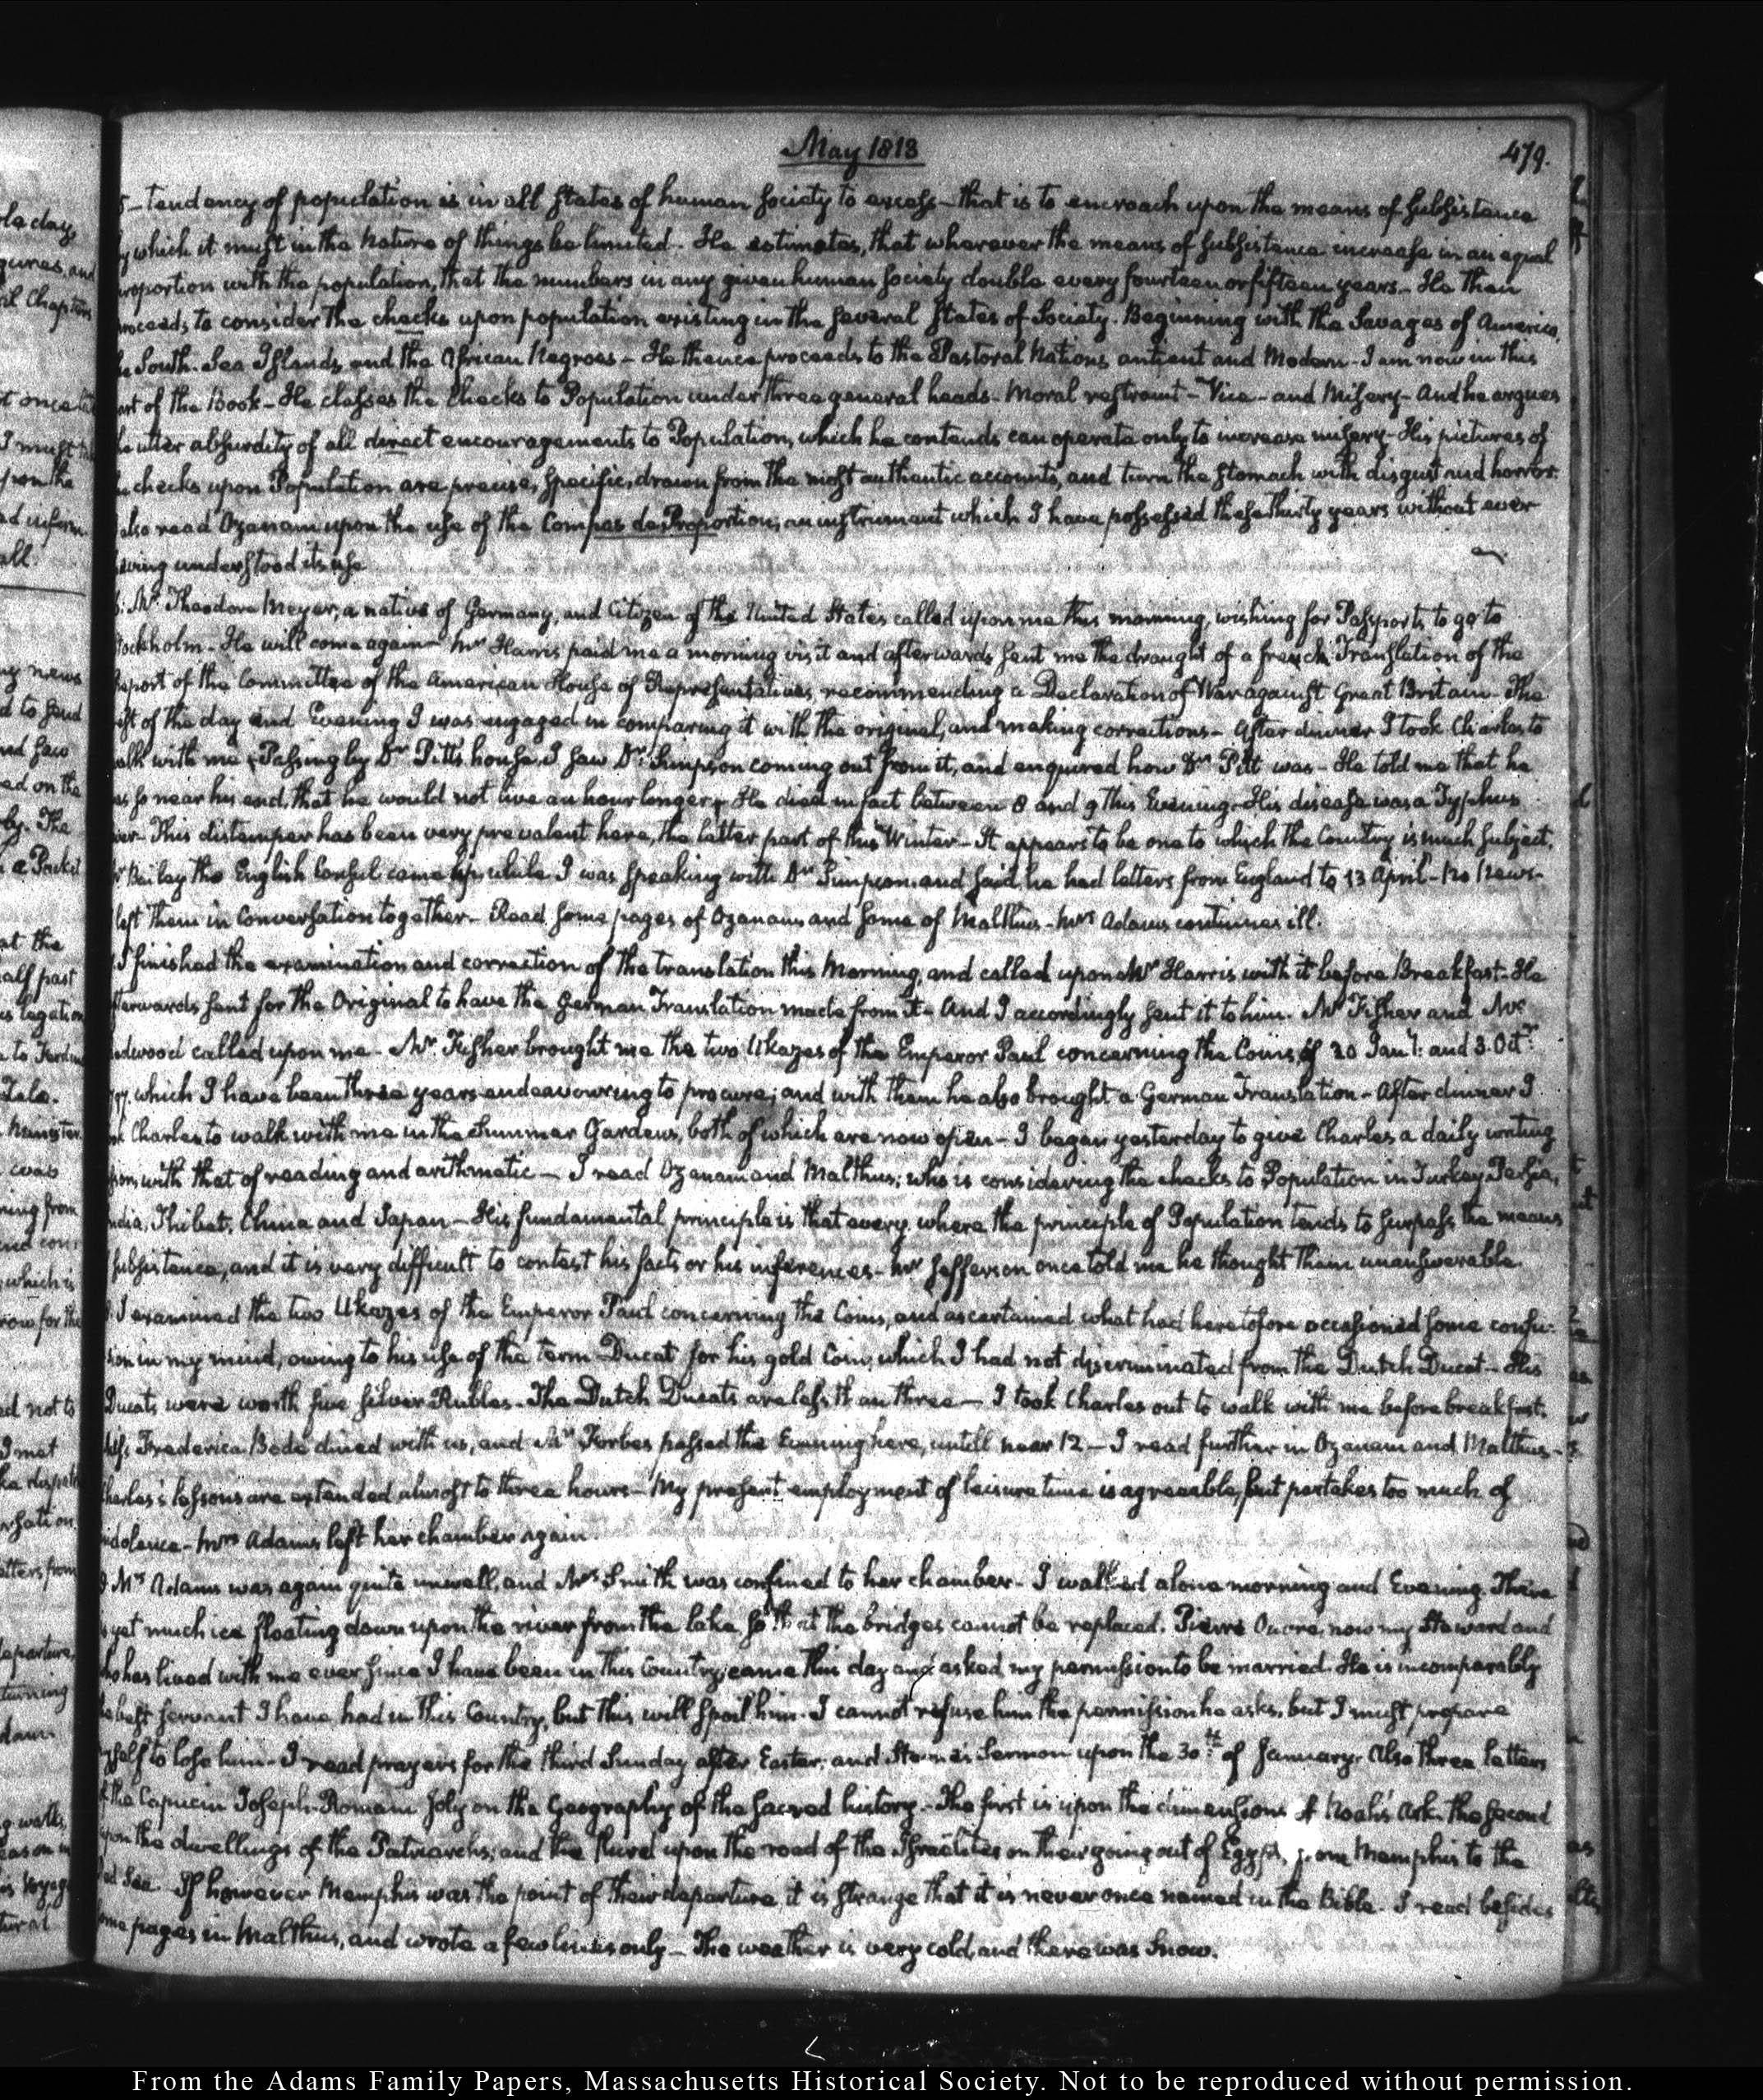 May 1813
479.
tendency of population is in all States of human Society to excess — that is to encroach upon the means of Subsistence
by which it must in the nature of things be limited. He estimates, that wherever the means of Subsistence increase in an equal
proportion with the population, that the numbers in any given human Society double every fourteen or fifteen years. He then
proceeds to consider the checks upon population existing in the several States of Society. Beginning with the Savages of America,
the South-Sea Islands, and the African Negroes — He thence proceeds to the Pastoral Nations, antient and Modern — I am now in this
part of the Book — He classes the checks to Population under three general heads — Moral restraint — Vice — and Misery — And he argues
the utter absurdity of all direct encouragements to Population, which he contends can operate only to increase misery — His pictures of
the checks upon Population are precise, specific, drawn from the most authentic accounts, and turn the stomach with disgust and horror.
also read Ozanam upon the use of the Compas de Proportion, an instrument which I have possessed these thirty years without ever
having understood its use
Mr. Theodore Meyer, a native of Germany, and Citizen of the United States called upon me this morning, wishing for Passports to go to
Stockholm — He will come again — Mr Harris paid me a morning visit and afterwards sent me the draught of a french Translation of the
Report of the Committee of the American House of Representatives, recommending a Declaration of War against Great Britain — The
rest of the day and Evening I was engaged in comparing it with the original, and making corrections — After dinner I took Charles to
walk with me. Passing by Dr Pitt's house, I saw Dr Simpson coming out from it, and enquired how Dr Pitt was — He told me that he
was so near his end, that he would not live an hour longer. He died in fact between 8 and 9 this Evening. His disease was a Typhus
fever — This distemper has been very prevalent here, the latter part of this Winter — It appears to be one to which the Country is much subject.
Mr Bailey the English Consul came up, while I was speaking with Dr Simpson and said he had letters from England to 13 April — No News.
left them in Conversation together — Read some pages of Ozanam and some of Malthus — Mrs Adams continues ill.
I finished the examination and correction of the translation this Morning, and called upon Mr Harris with it before Breakfast. He
afterwards sent for the Original to have the German Translation made from it — And I accordingly sent it to him. Mr Fisher and Mr
Redwood called upon me — Mr Fisher brought me the two Ukazes of the Emperor Paul concerning the Coins, of 20 Jany: and 3. Octr:
which I have been three years endeavouring to procure; and with them he also brought a German Translation — After dinner I
took Charles to walk with me in the Summer Gardens, both of which are now open — I began yesterday to give Charles a daily writing
lesson, with that of reading and arithmetic — I read Ozanam and Malthus; who is considering the checks to Population in Turkey, Persia,
India, Thibet, China and Japan — His fundamental principle is that every where the principle of Population tends to surpass the means
subsistence, and it is very difficult to contest his facts or his inferences — Mr Jefferson once told me he thought them unanswerable.
I examined the two Ukazes of the Emperor Paul concerning the Coins, and ascertained what had heretofore occasioned some confu-
sion in my mind, owing to his use of the term Ducat for his gold Coin, which I had not discriminated from the Dutch Ducat — His
Ducats were worth five silver Rubles — The Dutch Ducats are less than three — I took Charles out to walk with me before breakfast.
Miss Frederica Bode dined with us, and Mr Forbes passed the Evening here, untill near 12 — I read further in Ozanam and Malthus —
Charles's lessons are extended almost to three hours — My present employment of leisure time is agreeable, but partakes too much of
indolence — Mrs Adams left her chamber again.
Mrs Adams was again quite unwell, and Mrs Smith was confined to her chamber — I walked alone morning and Evening. There
is yet much ice floating down upon the river from the lake, so that the bridges cannot be replaced. Pierre now my Steward and
who has lived with me ever since I have been in this Country, came this day and asked my permission to be married. He is incomparably
the best servant I have had in this Country, but this will spoil him. I cannot refuse him the permission he asks, but I must prepare
myself to lose him — I read prayers for the third Sunday after Easter, and Sterne's Sermon upon the 30th: of January. Also three letters
of the Capucin Joseph-Romain Joly on the Geography of the sacred history — The first is upon the dimensions of Noah's Ark, the second
upon the dwellings of the Patriarchs; and the third upon the road of the Israelites on their going out of Egypt, from Memphis to the
Red Sea. If however Memphis was the point of their departure, it is strange that it is never once named in the Bible. I read besides
some pages in Malthus, and wrote a few lines only — The weather is very cold, and there was Snow.
From the Adams Family Papers, Massachusetts Historical Society. Not to be reproduced without permission.